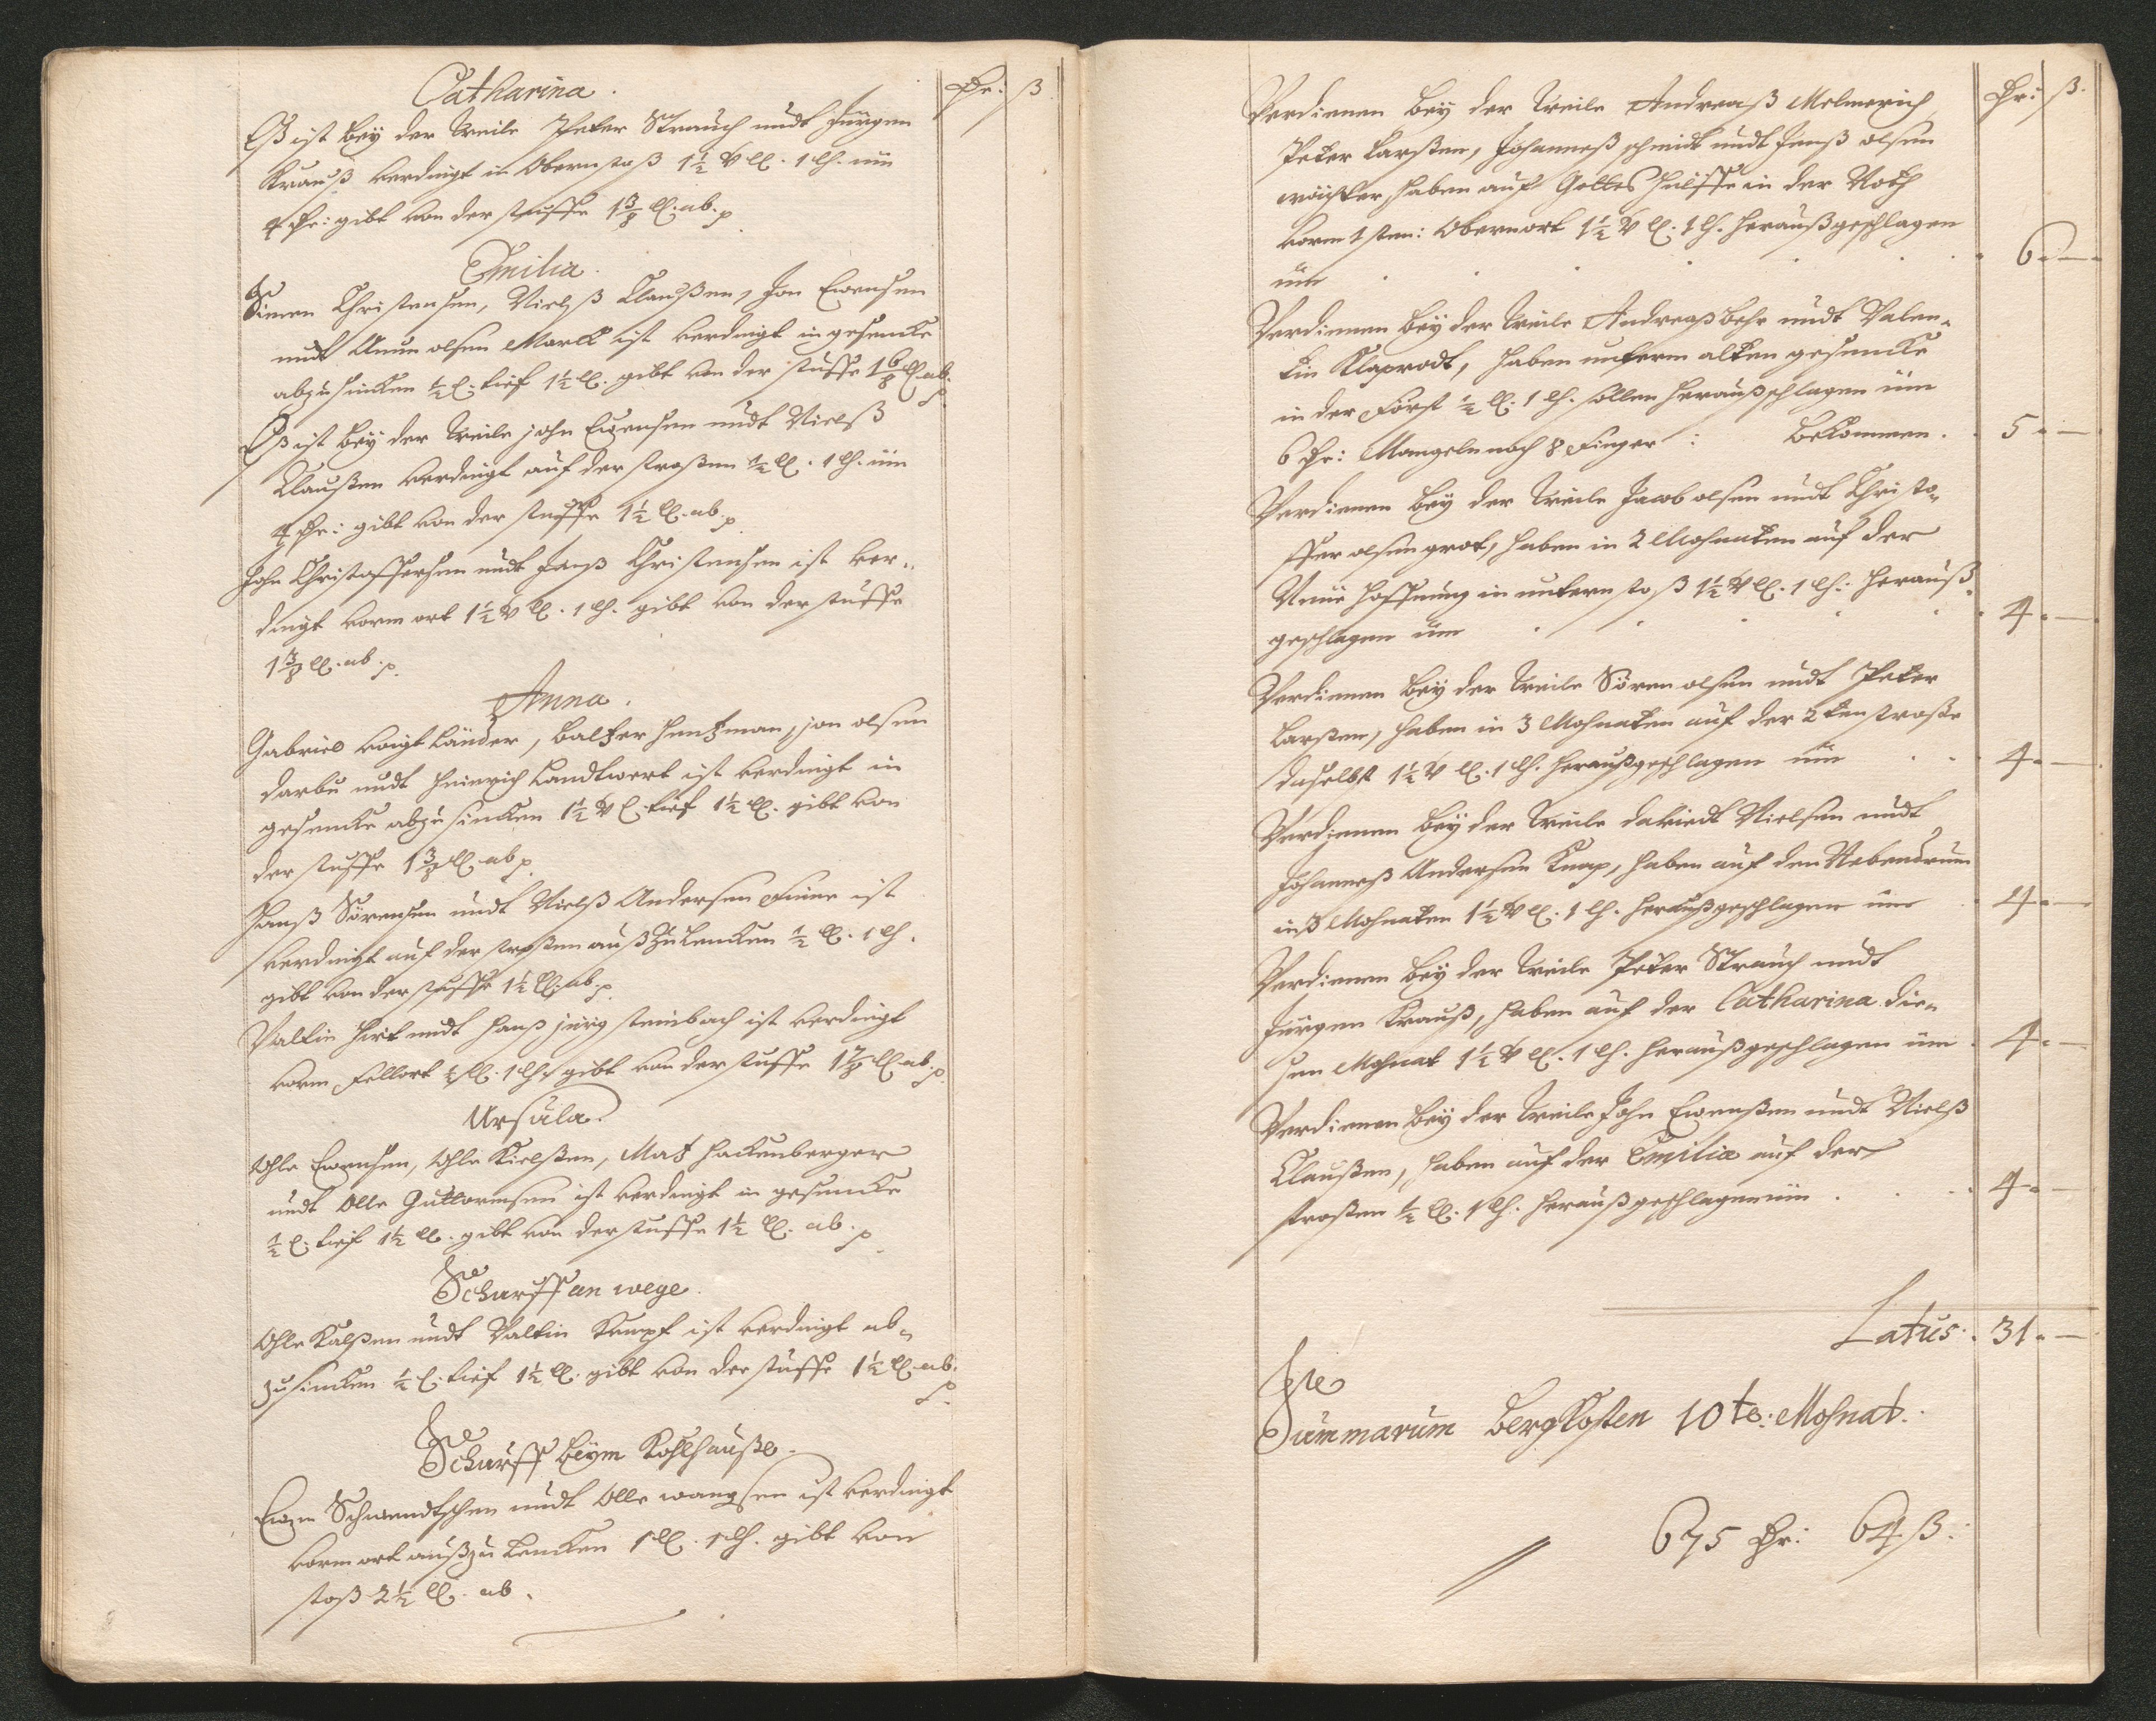 Pr: ß
Catharina.
Eß ist bey der Weile Peter Strauch undt Jürgen
Krauß verdingt in Obernstoß 1½ V ll. 1 lh. üm
4 Pr: gibt von der stuffe 1 3/8 ll. ab. p
Emilia.
Simen Christensen, Nielß Claußen, Jon Evensen
undt Amun olsen Marck ist verdingt in gesencke
abzusincken ½ l. tief 1½ ll. gibt von der stuffe 1 6/8 ll. ab. p
Eß ist bey der Weile john Evensen undt Nielß
Claußen verdingt auf der stroßen ½ ll. 1 lh. üm
4 Pr: gibt von der stuffe 1½ ll. ab. p
John Christoffersen undt Hanß Christensen ist ver-
dingt vorm ort 1½ V ll. 1 lh. gibt von der stuffe
1 3/8 ll. ab. p.
Anna.
Gabriel voigt Länder, Baltzer Hentzman, jon olsen
darbu undt Heinrich Landtwert ist verdingt in
gesencke abzusincken 1½ V l. tief 1½ ll. gibt von
der stuffe 1 3/8 ll. ab p.
Hanß Sörensen undt Nielß Andersen Finne ist
verdingt auf der stroßen auß Zulencken ½ ll. 1 lh.
gibt von der stuffe 1½ ll. ab. p.
Valtin Hirt undt Hanß jürg steinbach ist verdingt
vorm Fellort ½ ll. 1 lh. gibt von der stuffe 1 7/8 ll. ab. p.
Ursula.
Ohle Evensen, Ohle Nielßen, Matz Hackenberger
undt Olle Guttormsen ist verdingt in gesencke
½ l. tief 1½ ll. gibt von der stuffe 1½ ll. ab. p
Schurff an wege.
Ohle Kalßen undt Valtin Kempf ist verdingt ab-
zusincken ½ l. tief 1½ ll. gibt von der stuffe 1½ ll. ab. p.
Schurff beym Kohlhauße.
Even Schwendtschen undt Olle wangsen ist verdingt
vorm ort außzulencken 1 ll. 1 lh. gibt von
stoß 2½ ll. ab.
Pr: ß.
Verdienen bey der Weile Andreaß Melmerich
Peter Larßen, Johanneß schmidt undt Jenß olsen
wächter, haben auf Gottes Hülffe in der Noth
vorm 1sten: Obernort 1½ V ll. 1 lh. heraußgeschlagen
üm . . . . . 6. —
Verdienen bey der Weile Andreaß behr undt Valen-
tin Klaprodt, haben unterm alten gesencke
in der Forst ½ ll. 1 lh. sollen heraußschlagen üm
6 Pr: Mangeln noch 8 Finger: bekommen. 5. —
Verdienen bey der Weile Jacob olsen undt Christo-
ffer olsen grot, haben in 2 Mohnaten auf der
Neüe Hoffnung in untern stoß 1½ V ll. 1 lh: herauß-
geschlagen üm . . . . 4. —
Verdienen bey der Weile Sören olsen undt Peter
Larßen, haben in 3 Mohnaten auf der 2ten stroße
daselbst 1½ V ll. 1 lh. heraußgeschlagen üm . . 4. —
Verdienen bey der Weile davidt Nielsen undt
Johanneß Andersen Knap, haben auf den Nebendrum
in 3 Mohnaten 1½ V ll. 1 lh. heraußgeschlagen üm . 4. —
Verdienen bey der Weile Peter Strauch undt
Jürgen Krauß, haben auf der Catharina die-
sen Mohnat 1½ V ll. 1 lh. heraußgeschlagen üm . 4. —
Verdienen bey der Weile John Evenßen undt Nielß
Claußen, haben auf der Emilia auf der
stroßen ½ ll. 1 lh. heraußgeschlagen üm . . . 4. —
Latus. 31. —
Summarum bergKosten 10te: Mohnat.
675 Pr: 64 ß.